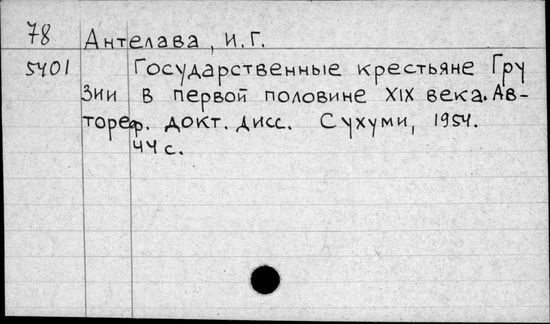 78 Антелава, И.Г.
5401 Государственные крестьяне Гру
зии в первой половине XIX века. Ав-
тореф. докт. дисс. Сухуми, 1954.
44 с.